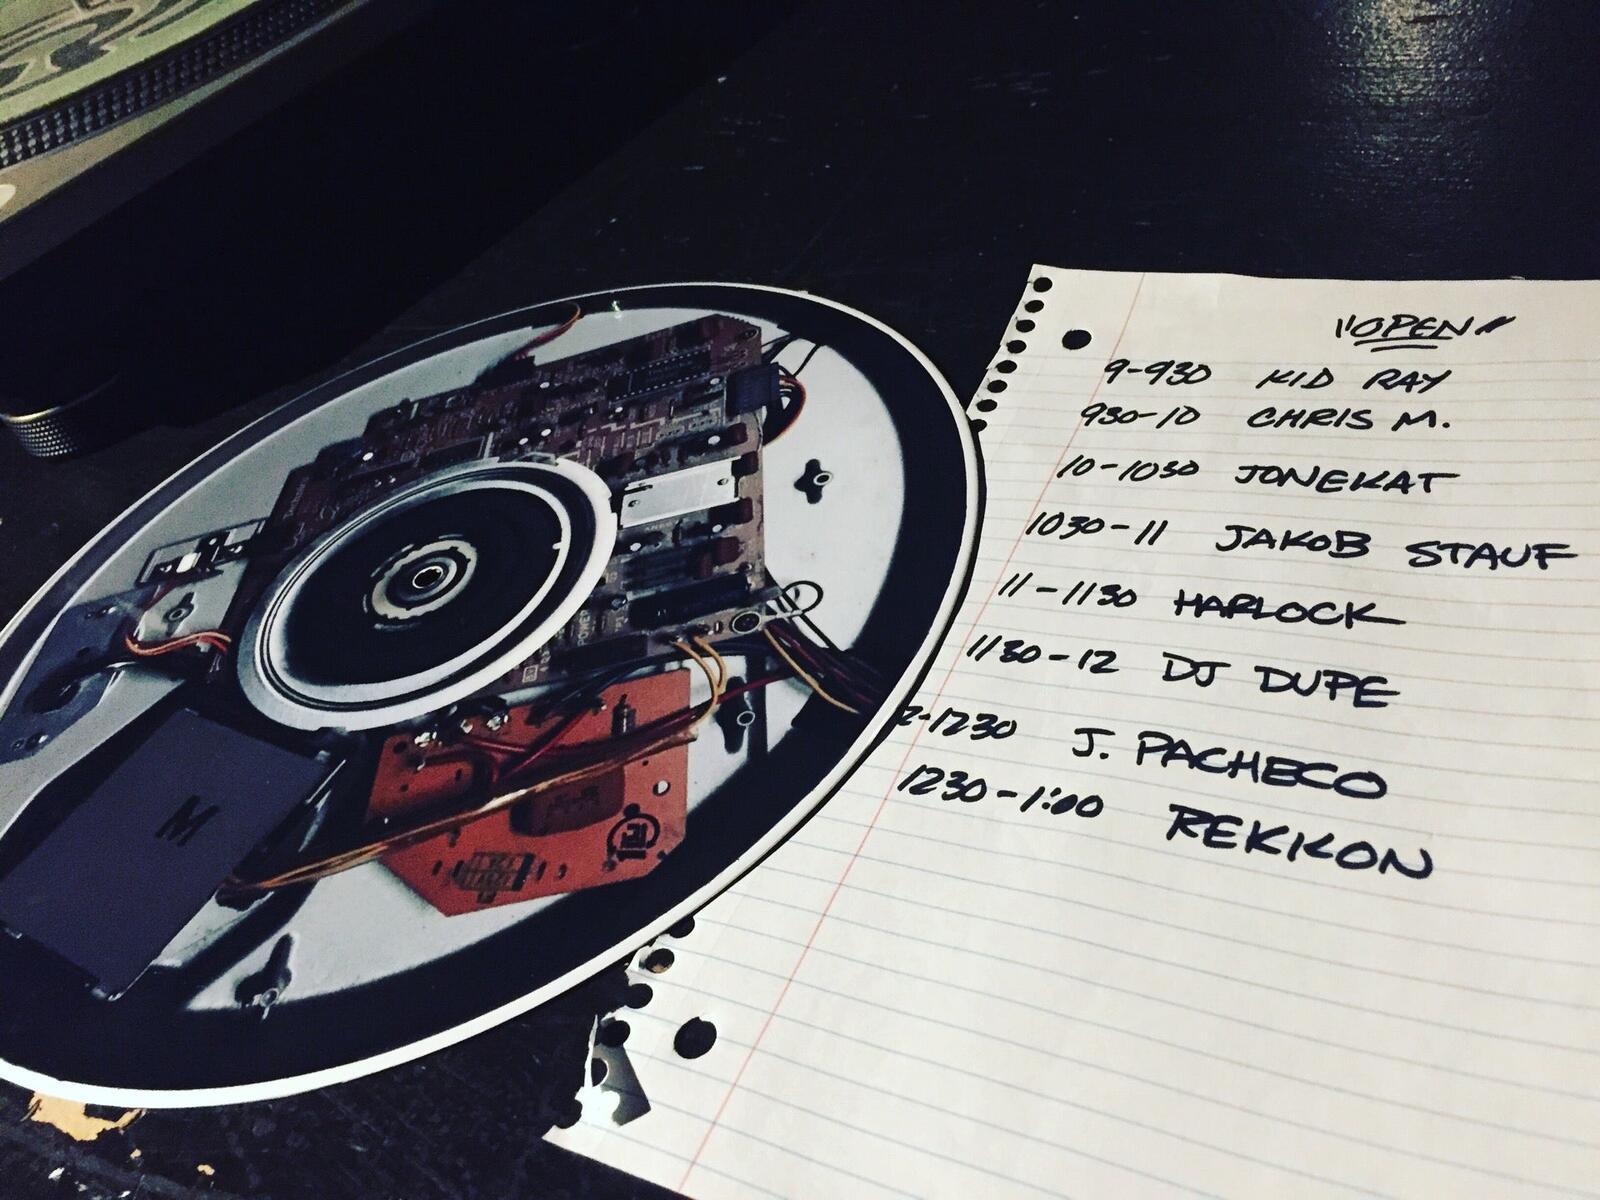 "OPEN"
9-930 KID RAY
930-10 CHRIS M.
10-1030 JONEKAT
1030-11 JAKOB STAUF
11-1130 HARLOCK
1130-12 DJ DUPE
2-1230 J. PACHECO
1230-1:00 REKKON
M
POWER